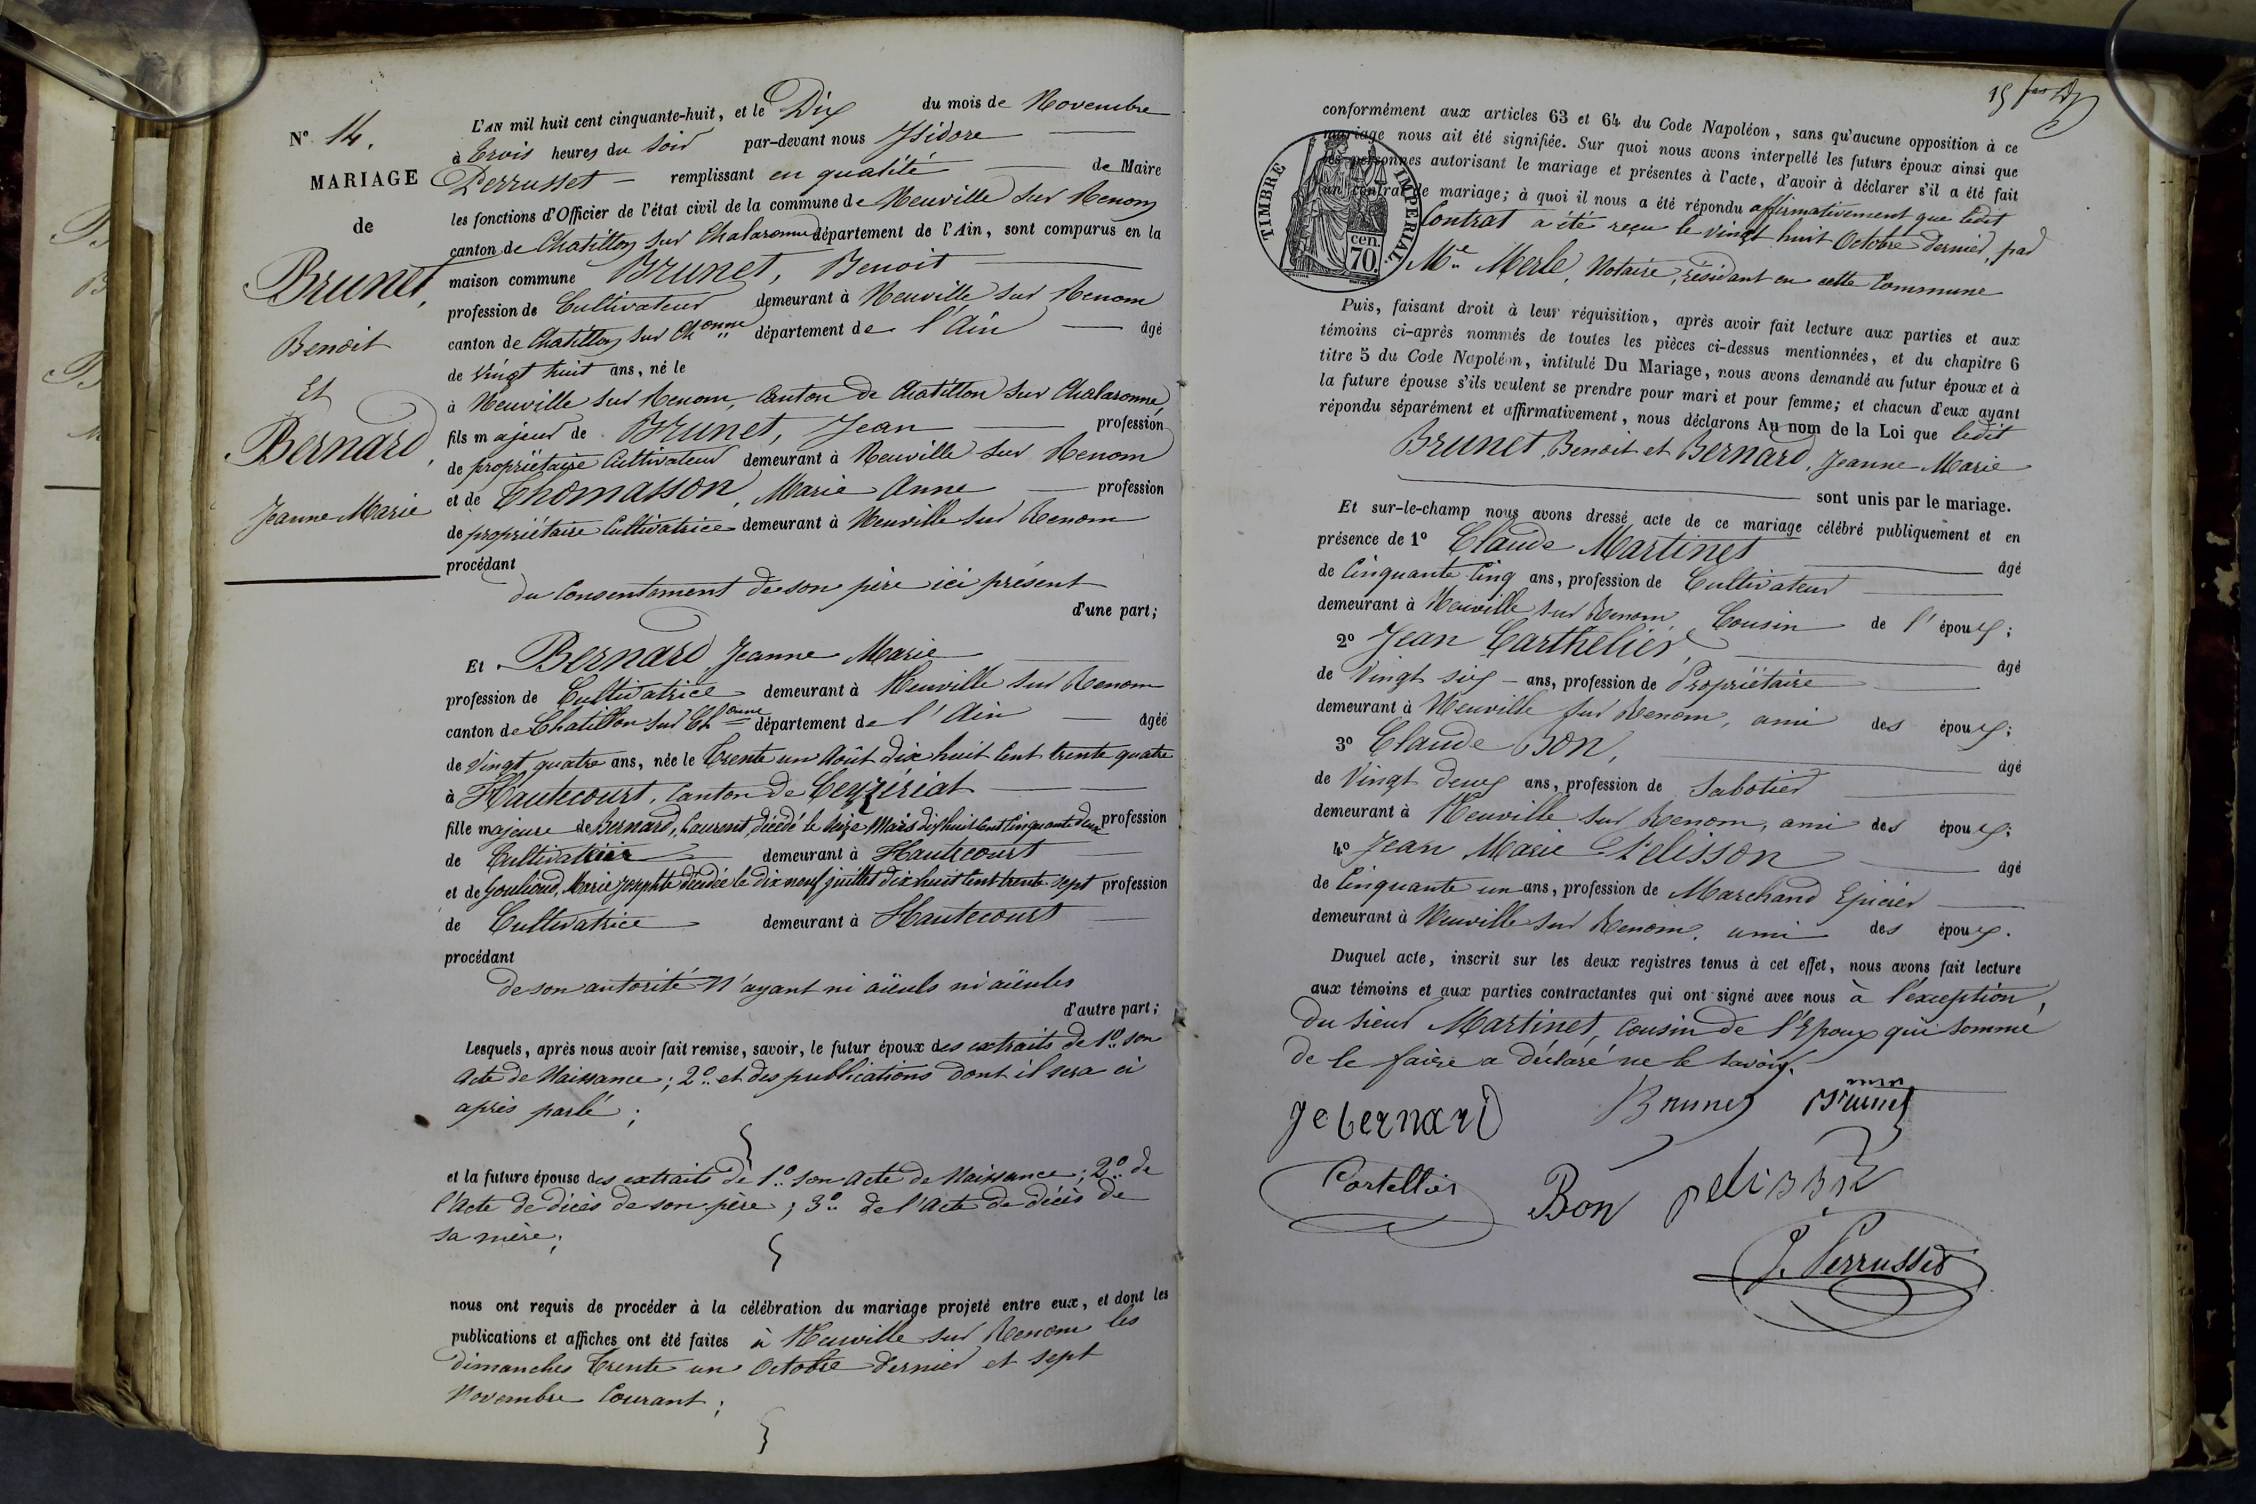 N.º 14.
MARIAGE
de
Brunet,
Benoit
Et
Bernard,
Jeanne Marie
L'AN mil huit cent cinquante-huit, et le Dix du mois de Novembre
à trois heures du soir par-devant nous Isidore
Perrusset remplissant en qualité de Maire
les fonctions d'Officier de l'état civil de la commune de Neuville sur Renom
canton de Chatillon sur Chalaronne département de l'Ain, sont comparus en la
maison commune Brunet, Benoit
profession de Cultivateur demeurant à Neuville sur Renom
canton de Chatillon sur Chonne département de l'Ain âgé
de vingt huit ans, né le
à Neuville sur Renom, Canton de Chatillon sur Chalaronne,
fils majeur de Brunet, Jean profession
de propriétaire Cultivateur demeurant à Neuville sur Renom
et de Thomasson, Marie Anne profession
de propriétaire Cultivatrice demeurant à Neuville sur Renom
procédant
du Consentement de son père ici présent
d'une part;
Et Bernard Jeanne Marie
profession de Cultivatrice demeurant à Neuville sur Renom
canton de Chatillon sur Chonne département de l'Ain âgée
de vingt quatre ans, née le trente un Août dix huit Cent trente quatre
à Hautecourt, Canton de Ceyzériat
fille majeure de Bernard, Laurent, décédé le seize Mars dix huit Cent Cinquante deux profession
de Cultivateur demeurant à Hautecourt
et de Gouliaud, Marie Josephte décédée le dix neuf juillet dix huit Cent trente sept profession
de Cultivatrice demeurant à Hautecourt
procédant
de son autorité n'ayant ni aïeuls ni aïeules
d'autre part;
Lesquels, après nous avoir fait remise, savoir, le futur époux des extraits de 1.º son
Acte de Naissance; 2.º et des publications dont il sera ci
après parlé;
et la future épouse des extraits de 1.º son Acte de Naissance; 2.º de
l'Acte de décès de son père; 3.º de l'Acte de décès de
sa mère;
nous ont requis de procéder à la célébration du mariage projeté entre eux, et dont les
publications et affiches ont été faites à Neuville sur Renom les
dimanches trente un Octobre dernier et sept
Novembre Courant;
conformément aux articles 63 et 64 du Code Napoléon, sans qu'aucune opposition à ce
mariage nous ait été signifiée. Sur quoi nous avons interpellé les futurs époux ainsi que
les personnes autorisant le mariage et présentes à l'acte, d'avoir à déclarer s'il a été fait
un contrat de mariage; à quoi il nous a été répondu affirmativement que ledit
Contrat a été reçu le vingt huit Octobre dernier, par
Me Merle, Notaire, résidant en cette Commune
TIMBRE IMPERIAL
cen.
70.
Puis, faisant droit à leur réquisition, après avoir fait lecture aux parties et aux
témoins ci-après nommés de toutes les pièces ci-dessus mentionnées, et du chapitre 6
titre 5 du Code Napoléon, intitulé Du Mariage, nous avons demandé au futur époux et à
la future épouse s'ils veulent se prendre pour mari et pour femme; et chacun d'eux ayant
répondu séparément et affirmativement, nous déclarons Au nom de la Loi que ledit
Brunet, Benoit et Bernard, Jeanne Marie
sont unis par le mariage.
Et sur-le-champ nous avons dressé acte de ce mariage célébré publiquement et en
présence de 1º Claude Martinet âgé
de Cinquante Cinq ans, profession de Cultivateur
demeurant à Neuville sur Renom, Cousin de l'époux;
2º Jean Carthelier, âgé
de Vingt six ans, profession de Propriétaire
demeurant à Neuville sur Renom, ami des époux;
3º Claude Bon, âgé
de Vingt deux ans, profession de Sabotier
demeurant à Neuville sur Renom, ami des époux;
4º Jean Marie Pelisson âgé
de Cinquante un ans, profession de Marchand Epicier
demeurant à Neuville sur Renom, ami des époux.
Duquel acte, inscrit sur les deux registres tenus à cet effet, nous avons fait lecture
aux témoins et aux parties contractantes qui ont signé avec nous à l'exception,
du sieur Martinet, Cousin de l'Epoux qui sommé
de le faire a déclaré ne le savoir.
je bernard Brunet Brunet
Cortellier Bon pelisson
J. Perrusset